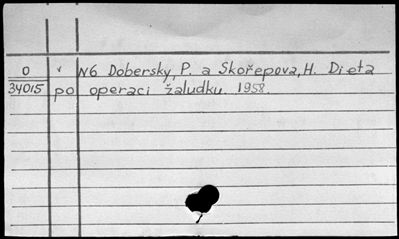 O v N6 Dobersky, P. a Skořepova, H. Dieta
34015 po operaci žaludku. 1958.